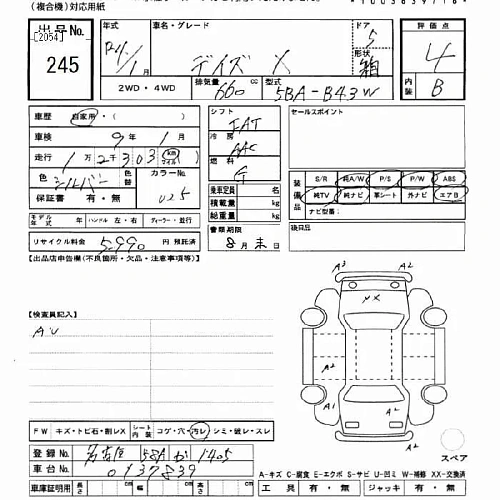 (複合機)対応用紙
出品 No. [2054] 245
年式 車名・グレード ドア 評価点
R4/1月 デイズ X 5 4
形状 箱 内装 B
排気量 型式
2WD・4WD 660 cc 5BA-B43W
車歴 自家用・( )
車検 9年 1月
走行 1万2千303 km マイル
色 シルバー 色替 カラーNo.
保証書 有・無
シフト FAT
冷房 AAC
燃料 G
乗車定員 名
積載量 kg
総重量 kg
セールスポイント
装備品 S/R 純A/W P/S P/W ABS
純TV 純ナビ 革シート 外ナビ エアB
ナビ型番( )
モデル年式 年 ハンドル 左・右 ディーラー・並行
リサイクル料金 5,990 円 預託済
書類期限 8月末日
後日品
【出品店申告欄(不良箇所・欠品・注意事項等)】
【検査員記入】
AU
A3 A2
XX
A2
A2
A1 A2
FW キズ・トビ石・割レX シート内装 コゲ・穴・汚レ・シミ・破レ・スレ
スペア
登録No. 名古屋 581 か 1405
車台No. 0137839
A-キズ C-腐食 E-エクボ S-サビ U-凹ミ W-補修 XX-交換済
車庫証明用 長 cm 幅 cm 高 cm 工具 有・無 ジャッキ 有・無